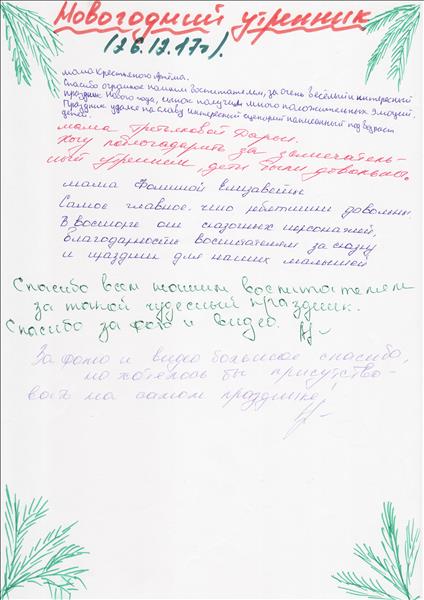 Новогодний утренник
(26.12.17г.).
мама Крестьяного Артёма.
Спасибо огромное нашим воспитателям, за очень весёлый и интересный
праздник Нового года, сынок получил много положительных эмоций.
Праздник удался на славу интересный сценарий написанный под возраст
детей.
мама Третьяковой Дарьи.
Хочу поблагодарить за замечатель-
ный утренник, дети были довольны.
мама Фоминой Елизаветы
Самое главное, что ребятишки довольны.
В восторге от сказочных персонажей,
благодарность воспитателям за сказку
и праздник для наших малышей
Спасибо всем нашим воспитателям
за такой чудесный праздник.
Спасибо за фото и видео.
За фото и видео большое спасибо,
но хотелось бы присутство-
вать на самом празднике!